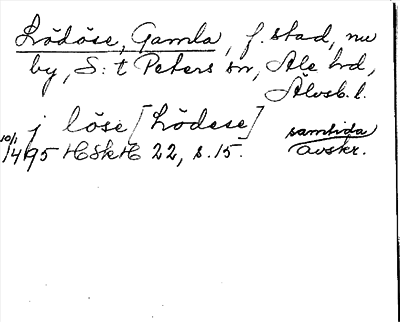 Lödöse, Gamla, f. stad, nu
by, S:t Peters sn, Ale hd,
Älvsb. l.
j löse [Lödese] samtida
10/1 1495 HSkH 22, s. 15. avskr.